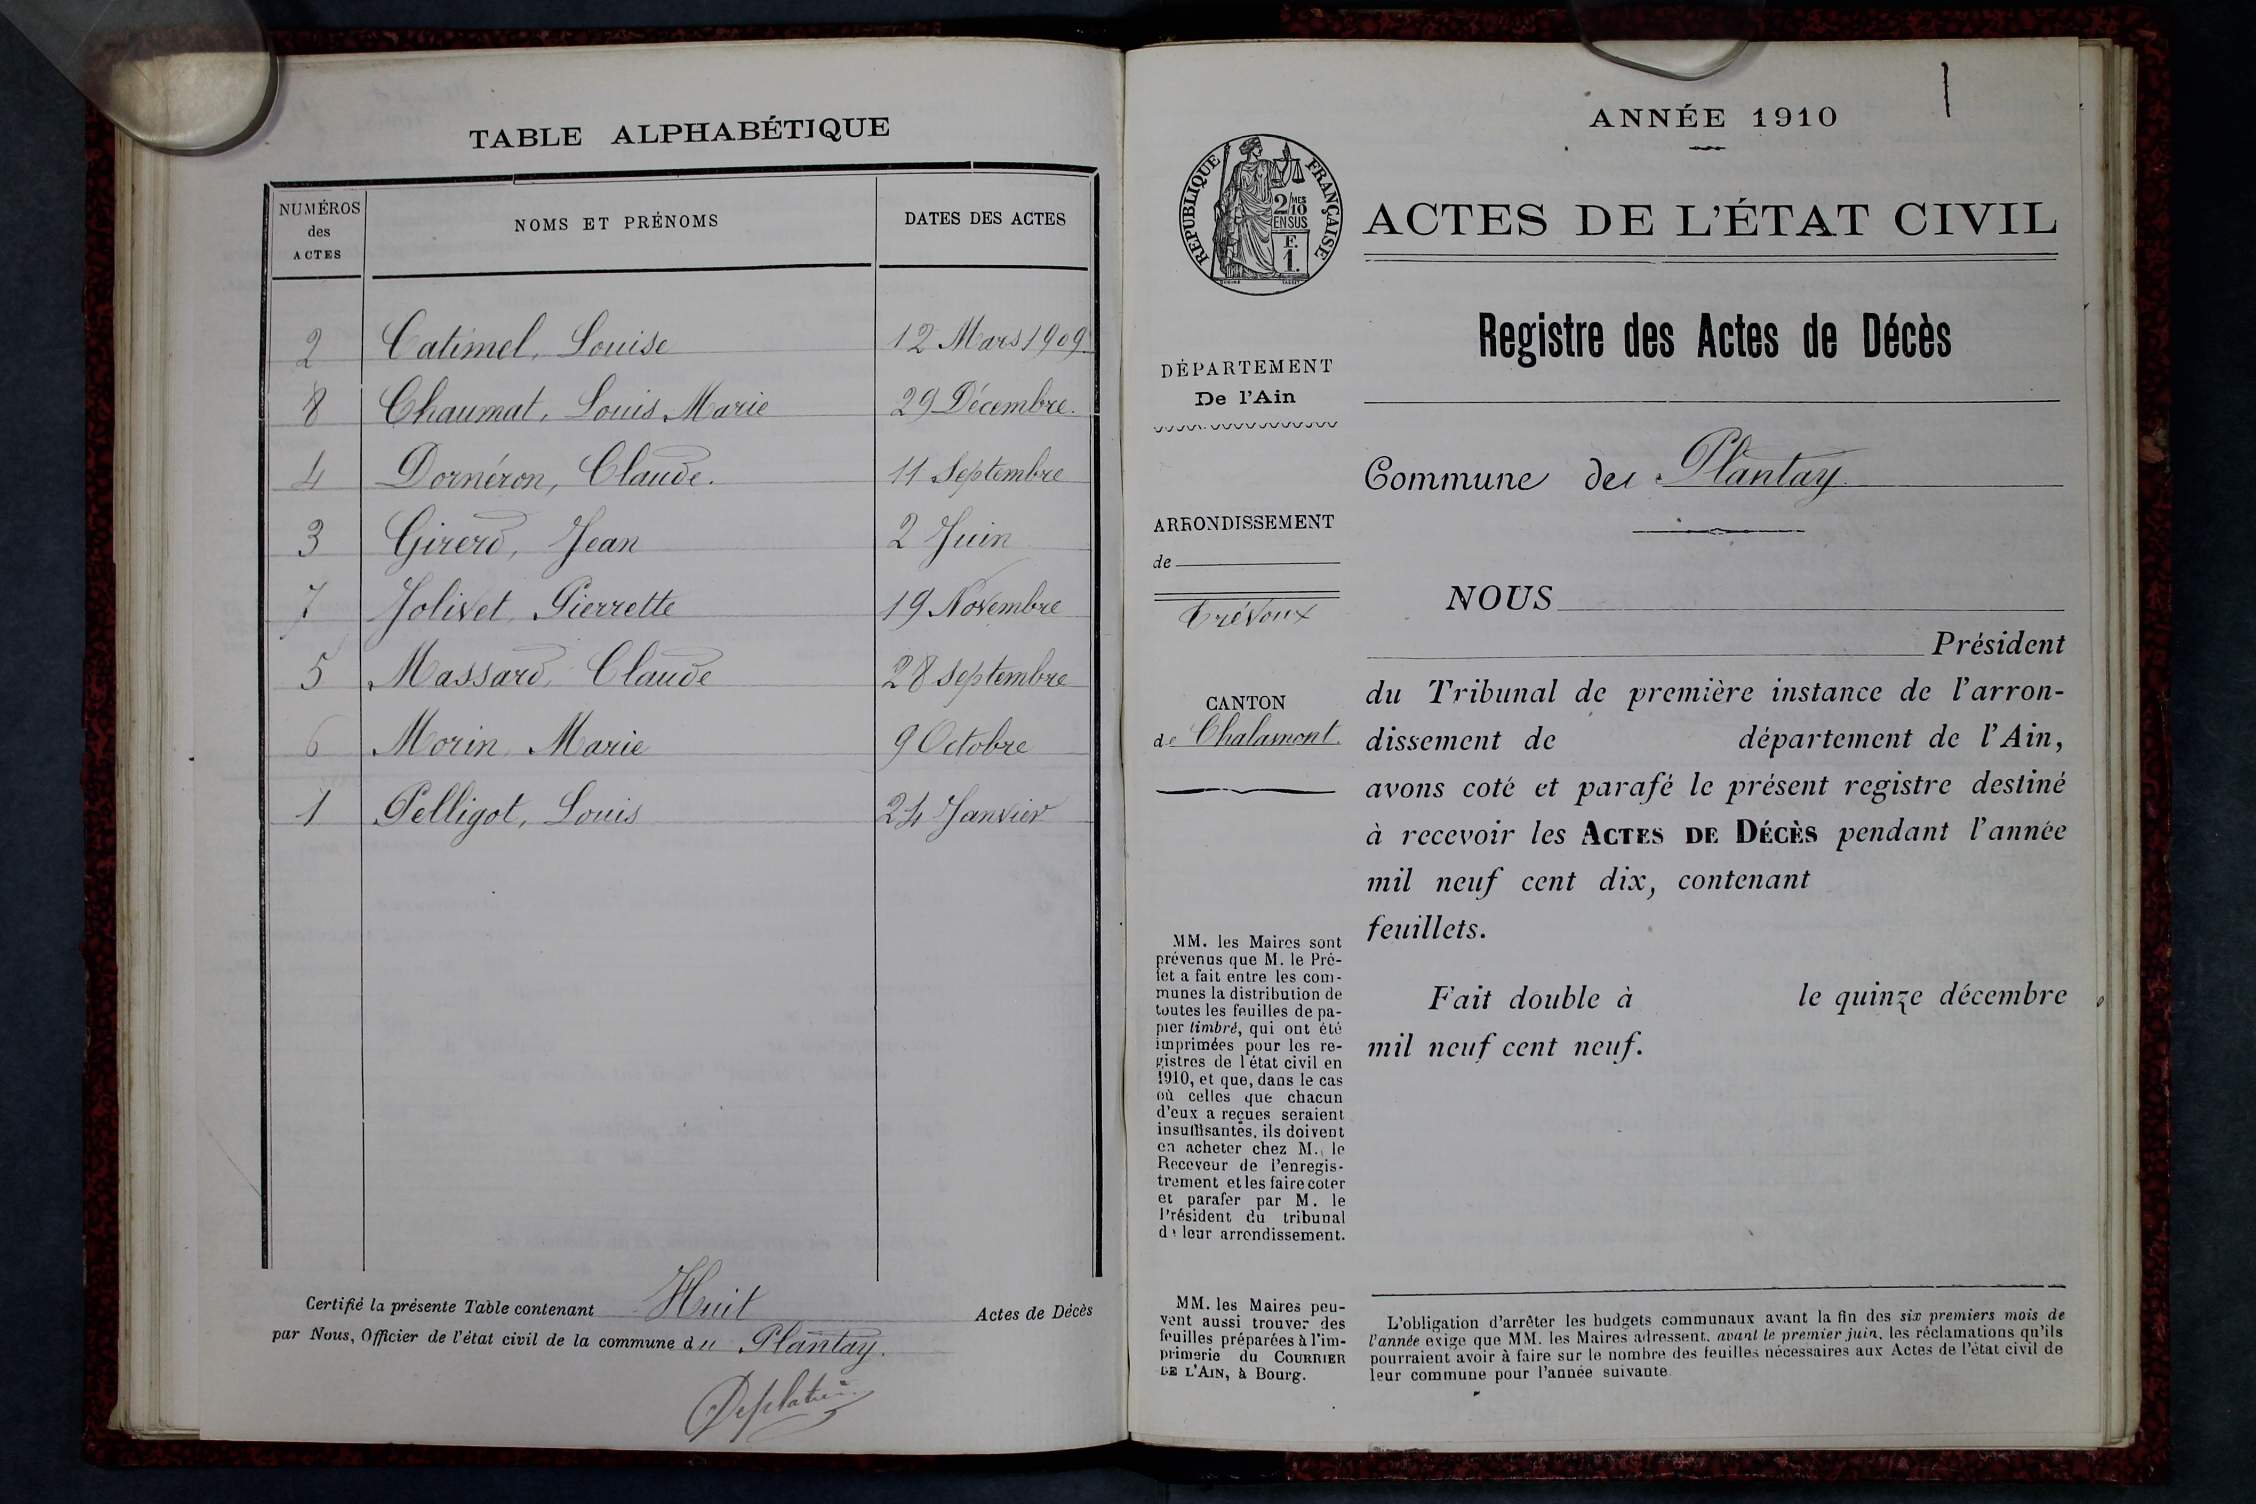 TABLE ALPHABÉTIQUE
NUMÉROS des ACTES
NOMS ET PRÉNOMS
DATES DES ACTES
2 Catimel, Louise 12 Mars 1909
8 Chaumat, Louis Marie 29 Décembre.
4 Dornéron, Claude. 11 Septembre
3 Girerd, Jean 2 Juin
7 Jolivet, Pierrette 19 Novembre
5 Massard, Claude 28 septembre
6 Morin, Marie 9 Octobre
1 Pelligot, Louis 24 Janvier
Certifié la présente Table contenant Huit Actes de Décès
par Nous, Officier de l'état civil de la commune du Plantay.
ANNÉE 1910
RÉPUBLIQUE FRANÇAISE
2/10 MES
EN SUS
F.
1.
ACTES DE L'ÉTAT CIVIL
Registre des Actes de Décès
DÉPARTEMENT
De l'Ain
Commune du Plantay
ARRONDISSEMENT
de
Trévoux
CANTON
de Chalamont.
NOUS
Président
du Tribunal de première instance de l'arron-
dissement de département de l'Ain,
avons coté et parafé le présent registre destiné
à recevoir les ACTES DE DÉCÈS pendant l'année
mil neuf cent dix, contenant
feuillets.
Fait double à le quinze décembre
mil neuf cent neuf.
MM. les Maires sont
prévenus que M. le Pré-
fet a fait entre les com-
munes la distribution de
toutes les feuilles de pa-
pier timbré, qui ont été
imprimées pour les re-
gistres de l'état civil en
1910, et que, dans le cas
où celles que chacun
d'eux a reçues seraient
insuffisantes, ils doivent
en acheter chez M. le
Receveur de l'enregis-
trement et les faire coter
et parafer par M. le
Président du tribunal
de leur arrondissement.
MM. les Maires peu-
vent aussi trouver des
feuilles préparées à l'im-
primerie du COURRIER
DE L'AIN, à Bourg.
L'obligation d'arrêter les budgets communaux avant la fin des six premiers mois de
l'année exige que MM. les Maires adressent, avant le premier juin, les réclamations qu'ils
pourraient avoir à faire sur le nombre des feuilles nécessaires aux Actes de l'état civil de
leur commune pour l'année suivante.